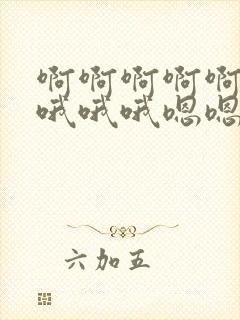 啊啊啊啊啊
哦哦哦嗯嗯
六加五